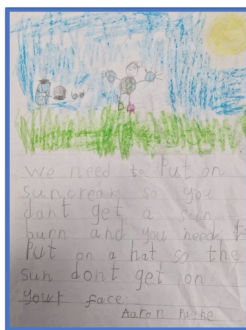 We need to Put on
suncream so you
dont get a sun
burn and you need to
Put on a hat so the
sun dont get on
your face
Aaron